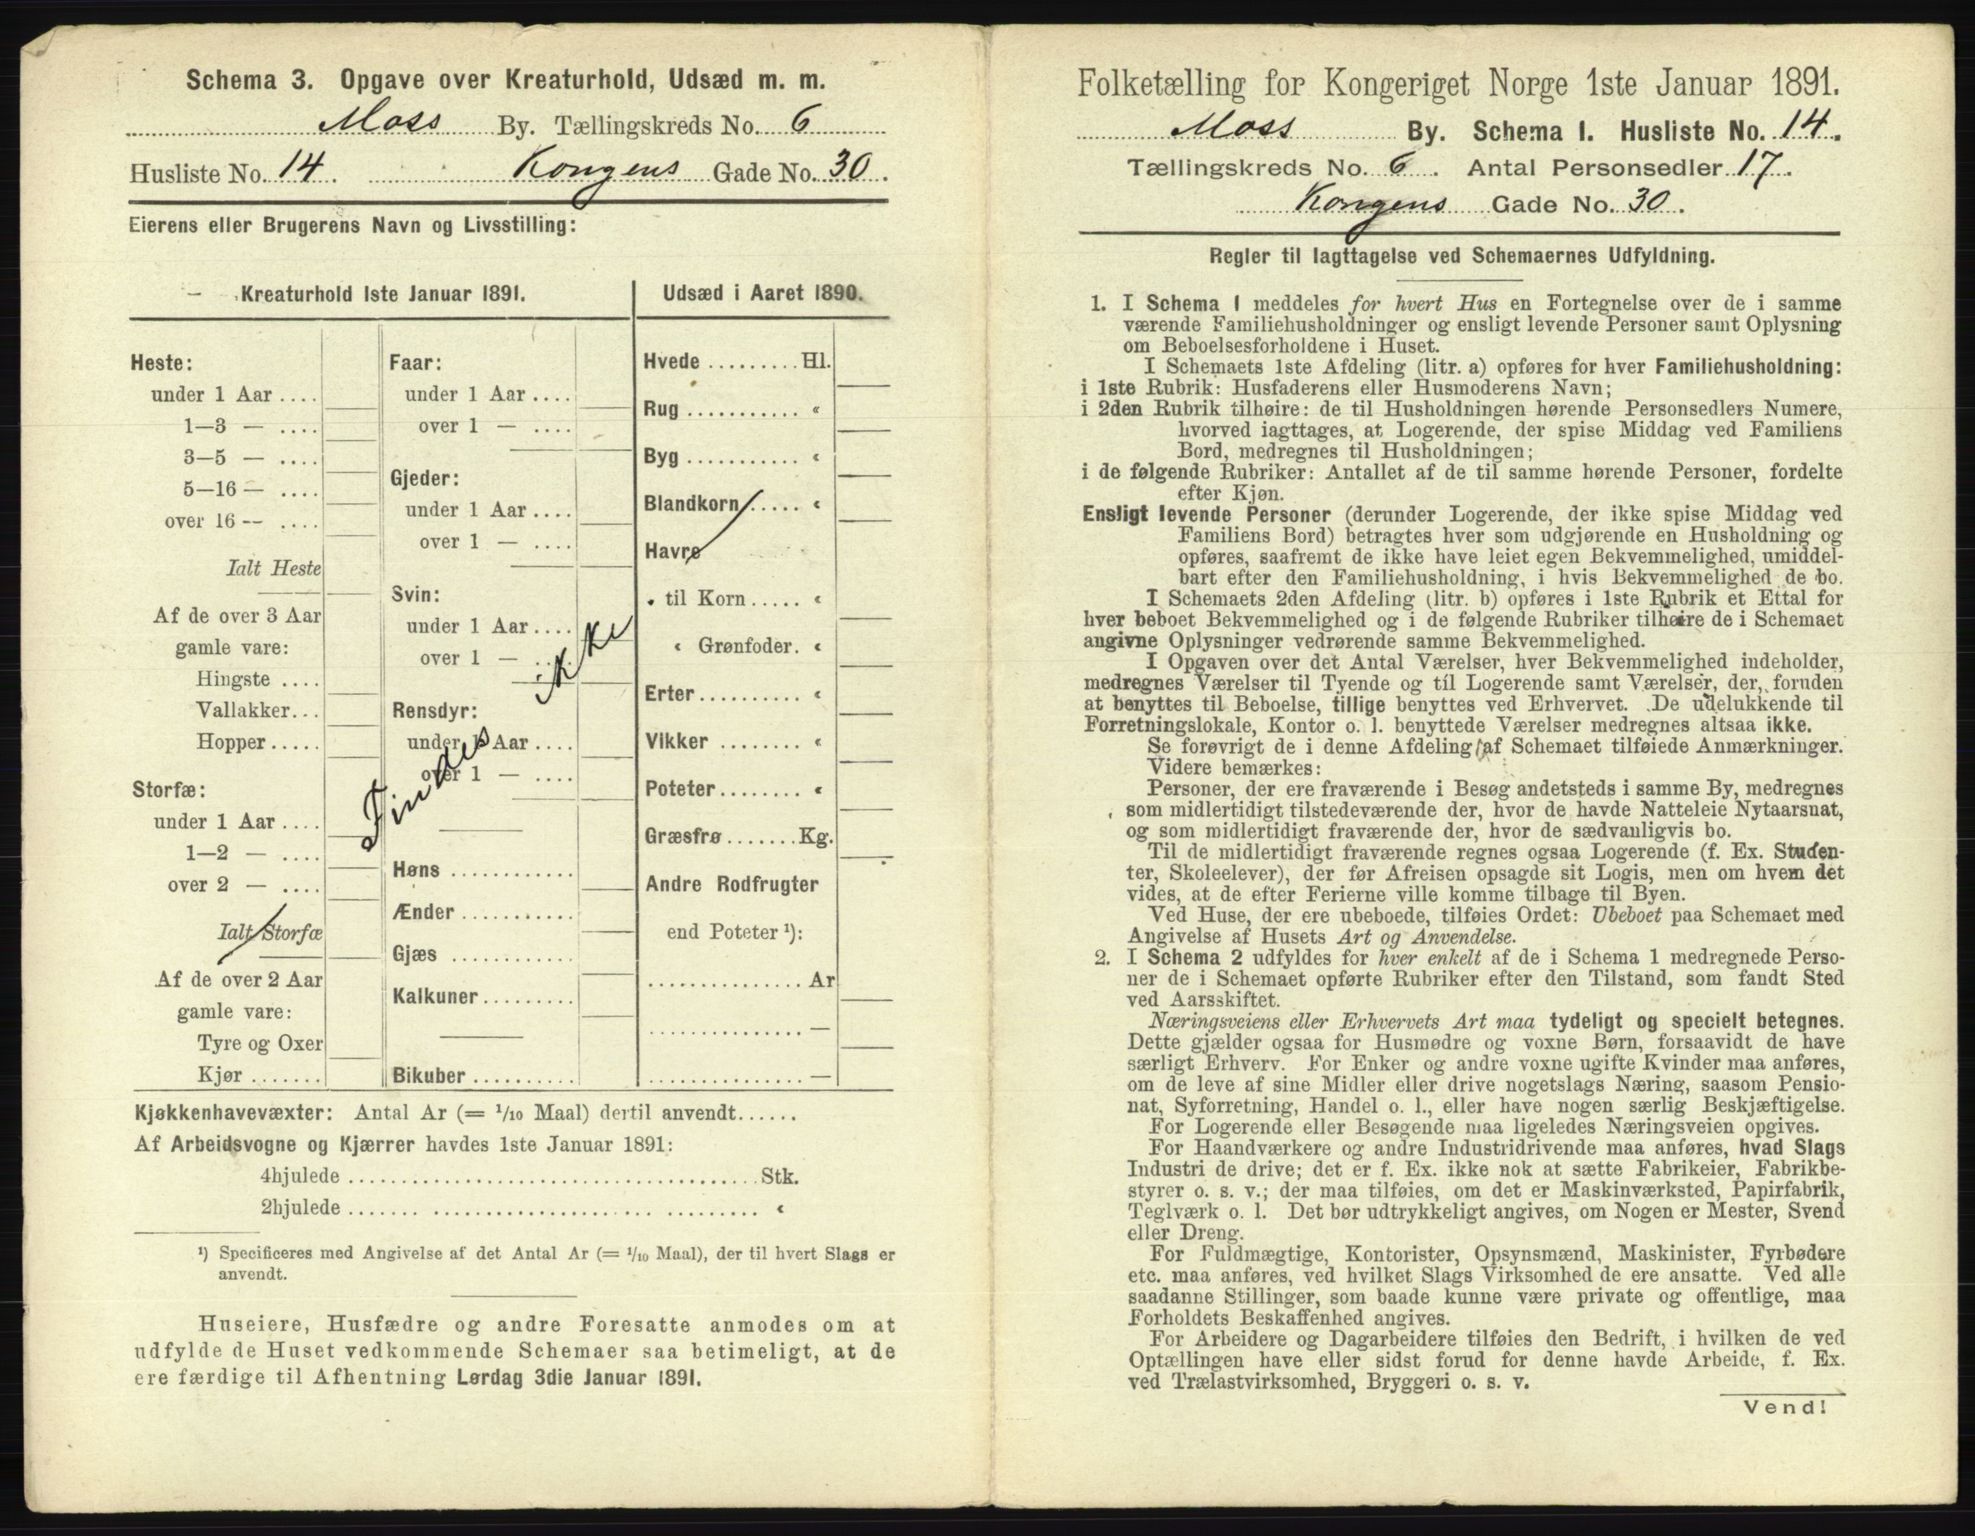 Schema 3. Opgave over Kreaturhold, Udsæd m. m.
Moss By. Tællingskreds No. 6
Husliste No. 14. Kongens Gade No. 30.
Eierens eller Brugerens Navn og Livsstilling:
Kreaturhold 1ste Januar 1891.
Heste:
under 1 Aar ....
1—3 — ....
3—5 — ....
5—16 — ....
over 16 -- ....
Ialt Heste
Af de over 3 Aar
gamle vare:
Hingste ....
Vallakker...
Hopper.....
Storfæ:
under 1 Aar ....
1—2 — ....
over 2 — ....
Ialt Storfæ
Af de over 2 Aar
gamle vare:
Tyre og Oxer
Kjør .......
Faar:
under 1 Aar ....
over 1 — ....
Gjeder:
under 1 Aar ....
over 1 — ....
Svin:
under 1 Aar ....
over 1 — ....
Rensdyr:
under 1 Aar ....
over 1 — ....
Høns ............
Ænder ...........
Gjæs ............
Kalkuner.........
Bikuber ..........
Findes ikke
Udsæd i Aaret 1890.
Hvede ......... Hl.
Rug ........... «
Byg ........... «
Blandkorn ..... «
Havre
til Korn ..... «
« Grønfoder. «
Erter .......... «
Vikker ........ «
Poteter ........ «
Græsfrø ....... Kg.
Andre Rodfrugter
end Poteter ¹):
............... Ar
............... —
............... —
Kjøkkenhavevæxter: Antal Ar (= 1/10 Maal) dertil anvendt......
Af Arbeidsvogne og Kjærrer havdes 1ste Januar 1891:
4hjulede ..................................... Stk.
2hjulede ..................................... «
¹) Specificeres med Angivelse af det Antal Ar (= 1/10 Maal), der til hvert Slags er
anvendt.
Huseiere, Husfædre og andre Foresatte anmodes om at
udfylde de Huset vedkommende Schemaer saa betimeligt, at de
ere færdige til Afhentning Lørdag 3die Januar 1891.
Folketælling for Kongeriget Norge 1ste Januar 1891.
Moss By. Schema 1. Husliste No. 14.
Tællingskreds No. 6. Antal Personsedler 17.
Kongens Gade No. 30.
Regler til Iagttagelse ved Schemaernes Udfyldning.
1. I Schema 1 meddeles for hvert Hus en Fortegnelse over de i samme
værende Familiehusholdninger og ensligt levende Personer samt Oplysning
om Beboelsesforholdene i Huset.
I Schemaets 1ste Afdeling (litr. a) opføres for hver Familiehusholdning:
i 1ste Rubrik: Husfaderens eller Husmoderens Navn;
i 2den Rubrik tilhøire: de til Husholdningen hørende Personsedlers Numere,
hvorved iagttages, at Logerende, der spise Middag ved Familiens
Bord, medregnes til Husholdningen;
i de følgende Rubriker: Antallet af de til samme hørende Personer, fordelte
efter Kjøn.
Ensligt levende Personer (derunder Logerende, der ikke spise Middag ved
Familiens Bord) betragtes hver som udgjørende en Husholdning og
opføres, saafremt de ikke have leiet egen Bekvemmelighed, umiddel-
bart efter den Familiehusholdning, i hvis Bekvemmelighed de bo.
I Schemaets 2den Afdeling (litr. b) opføres i 1ste Rubrik et Ettal for
hver beboet Bekvemmelighed og i de følgende Rubriker tilhøire de i Schemaet
angivne Oplysninger vedrørende samme Bekvemmelighed.
I Opgaven over det Antal Værelser, hver Bekvemmelighed indeholder,
medregnes Værelser til Tyende og til Logerende samt Værelser, der, foruden
at benyttes til Beboelse, tillige benyttes ved Erhvervet. De udelukkende til
Forretningslokale, Kontor o. l. benyttede Værelser medregnes altsaa ikke.
Se forøvrigt de i denne Afdeling af Schemaet tilføiede Anmærkninger.
Videre bemærkes:
Personer, der ere fraværende i Besøg andetsteds i samme By, medregnes
som midlertidigt tilstedeværende der, hvor de havde Natteleie Nytaarsnat,
og som midlertidigt fraværende der, hvor de sædvanligvis bo.
Til de midlertidigt fraværende regnes ogsaa Logerende (f. Ex. Studen-
ter, Skoleelever), der før Afreisen opsagde sit Logis, men om hvem det
vides, at de efter Ferierne ville komme tilbage til Byen.
Ved Huse, der ere ubeboede, tilføies Ordet: Ubeboet paa Schemaet med
Angivelse af Husets Art og Anvendelse.
2. I Schema 2 udfyldes for hver enkelt af de i Schema 1 medregnede Perso-
ner de i Schemaet opførte Rubriker efter den Tilstand, som fandt Sted
ved Aarsskiftet.
Næringsveiens eller Erhvervets Art maa tydeligt og specielt betegnes.
Dette gjælder ogsaa for Husmødre og voxne Børn, forsaavidt de have
særligt Erhverv. For Enker og andre voxne ugifte Kvinder maa anføres,
om de leve af sine Midler eller drive nogetslags Næring, saasom Pensio-
nat, Syforretning, Handel o. l., eller have nogen særlig Beskjæftigelse.
For Logerende eller Besøgende maa ligeledes Næringsveien opgives.
For Haandværkere og andre Industridrivende maa anføres, hvad Slags
Industri de drive; det er f. Ex. ikke nok at sætte Fabrikeier, Fabrikbe-
styrer o. s. v.; der maa tilføies, om det er Maskinværksted, Papirfabrik,
Teglværk o. l. Det bør udtrykkeligt angives, om Nogen er Mester, Svend
eller Dreng.
For Fuldmægtige, Kontorister, Opsynsmænd, Maskinister, Fyrbødere
etc. maa anføres, ved hvilket Slags Virksomhed de ere ansatte. Ved alle
saadanne Stillinger, som baade kunne være private og offentlige, maa
Forholdets Beskaffenhed angives.
For Arbeidere og Dagarbeidere tilføies den Bedrift, i hvilken de ved
Optællingen have eller sidst forud for denne havde Arbeide, f. Ex.
ved Trælastvirksomhed, Bryggeri o. s. v.
Vend!